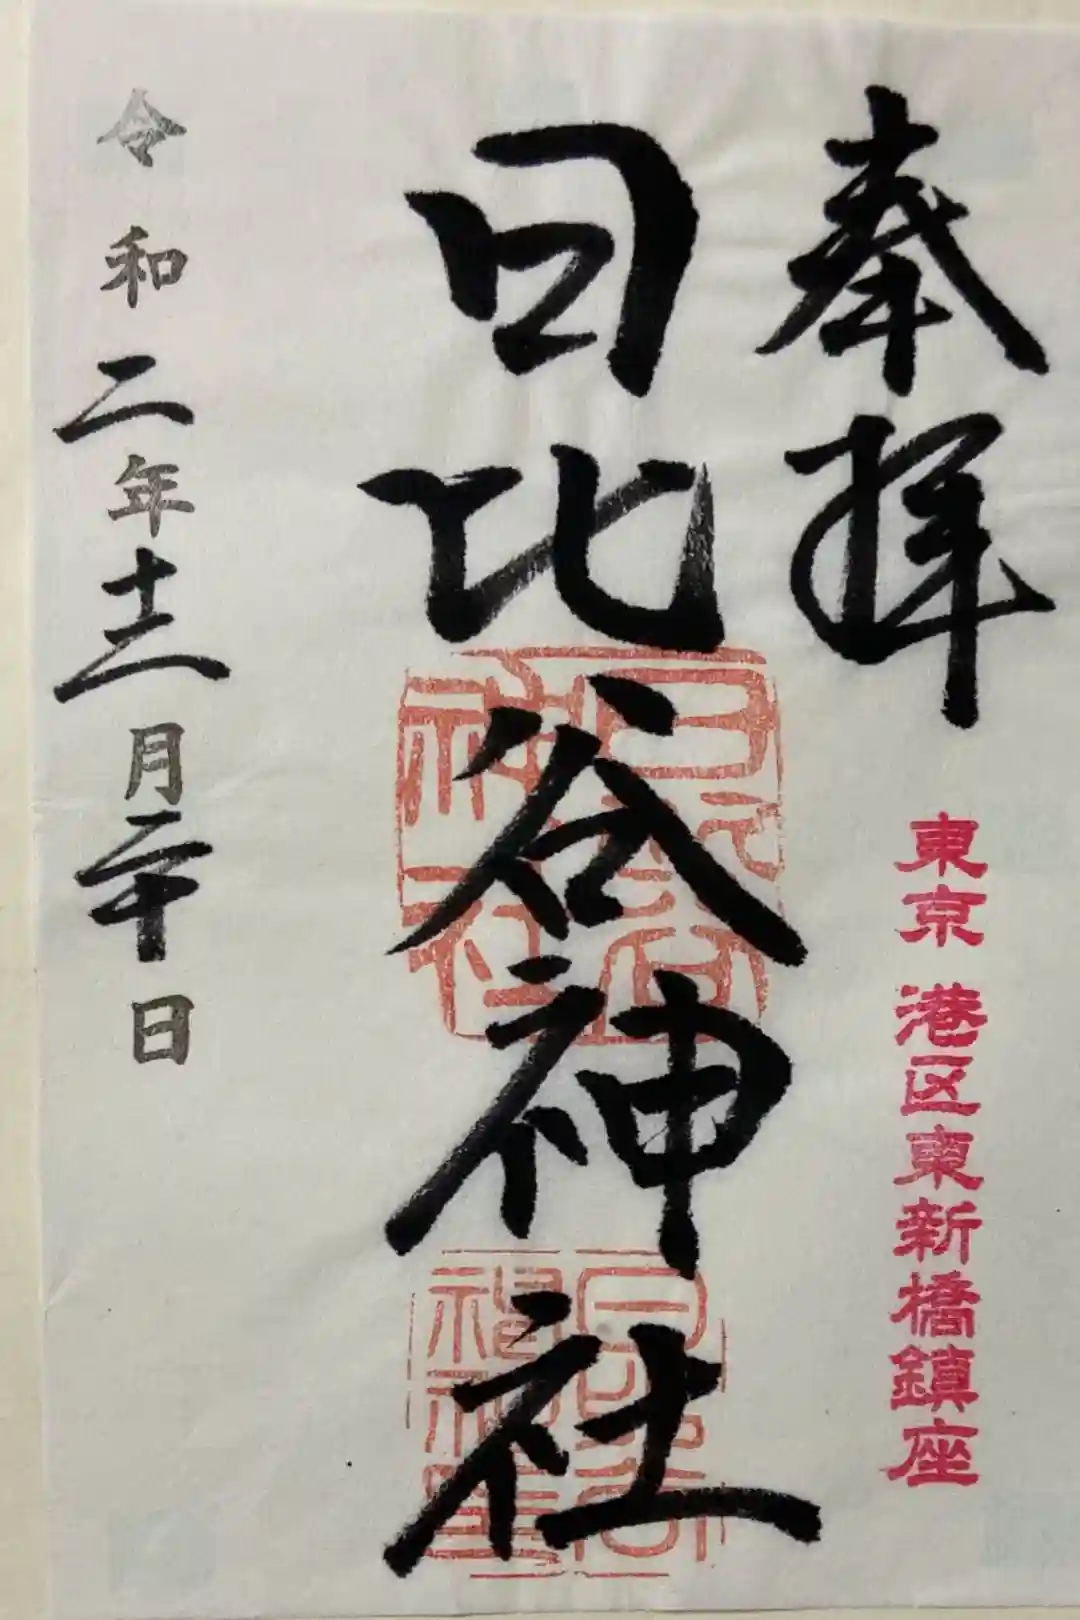 奉拝
東京 港区東新橋鎮座
日比谷神社
令和二年十二月二十日